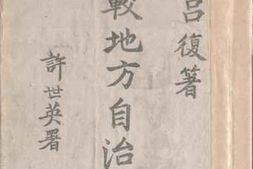 呂復著
較地方自治
許世英署